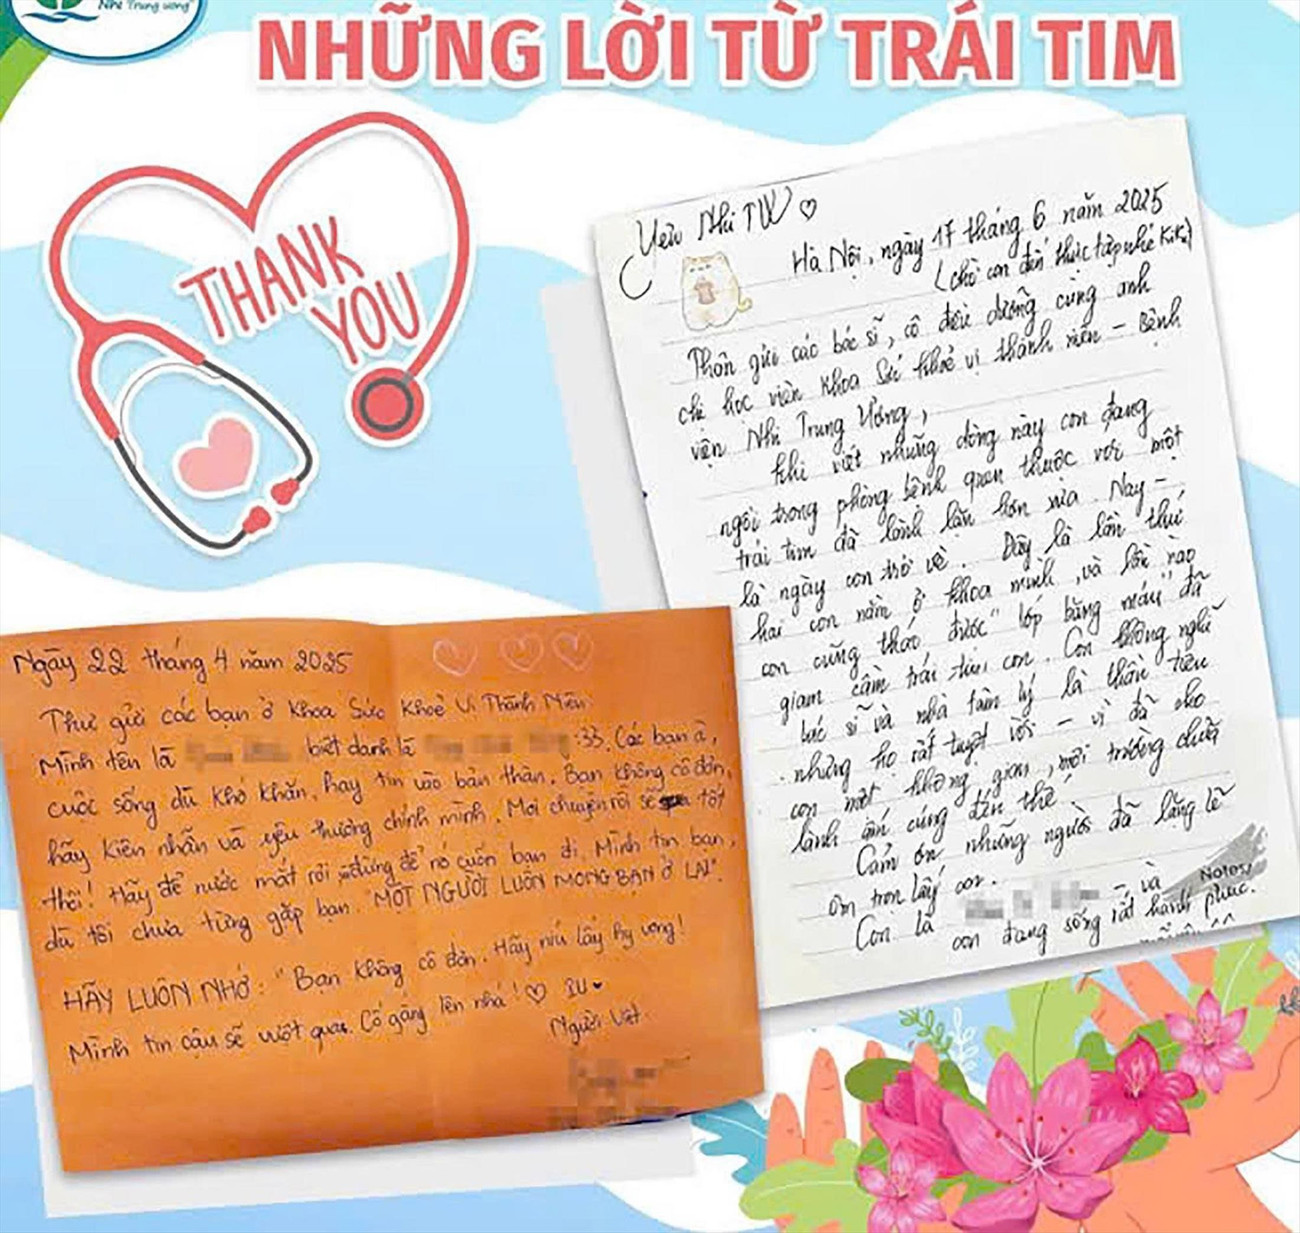 Nhi Trung ương
NHỮNG LỜI TỪ TRÁI TIM
THANK
YOU
Yêu Nhi TW ♡
Hà Nội, ngày 17 tháng 6 năm 2025
(chờ con đến thực tập nhé KiKi)
Thân gửi các bác sĩ, cô điều dưỡng cùng anh
chị học viên khoa Sức khỏe vị thành niên - Bệnh
viện Nhi Trung Ương,
Khi viết những dòng này con đang
ngồi trong phòng bệnh quen thuộc với một
trái tim đã lành lặn hơn xưa. Nay -
là ngày con trở về. Đây là lần thứ
hai con nằm ở khoa mình, và lần nào
con cũng tháo được "lớp băng máu" đã
giam cầm trái tim con. Con không nghĩ
bác sĩ và nhà tâm lý là thần tiên
nhưng họ rất tuyệt vời - vì đã cho
con một không gian, môi trường chữa
lành ấm cúng đến thế!
Cảm ơn những người đã lặng lẽ
ôm trọn lấy con.
Con là - và
con đang sống rất hạnh phúc.
Notes
Ngày 22 tháng 4 năm 2025
Thư gửi các bạn ở Khoa Sức Khoẻ Vị Thành Niên.
Mình tên là biệt danh là :33. Các bạn à,
cuộc sống dù khó khăn, hãy tin vào bản thân. Bạn không cô đơn,
hãy kiên nhẫn và yêu thương chính mình. Mọi chuyện rồi sẽ tốt
thôi! Hãy để nước mắt rơi, đừng để nó cuốn bạn đi. Mình tin bạn,
dù tôi chưa từng gặp bạn. "MỘT NGƯỜI LUÔN MONG BẠN Ở LẠI".
HÃY LUÔN NHỚ: "Bạn không cô đơn. Hãy níu lấy hy vọng!
Mình tin cậu sẽ vượt qua. Cố gắng lên nhá! ♡ IU ♥
Người viết.